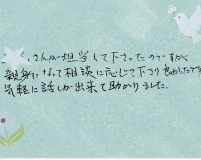 さんが担当して下さったのですが、
親身になって相談に応じて下さり良かったです
気軽に話しが出来て助かりました。